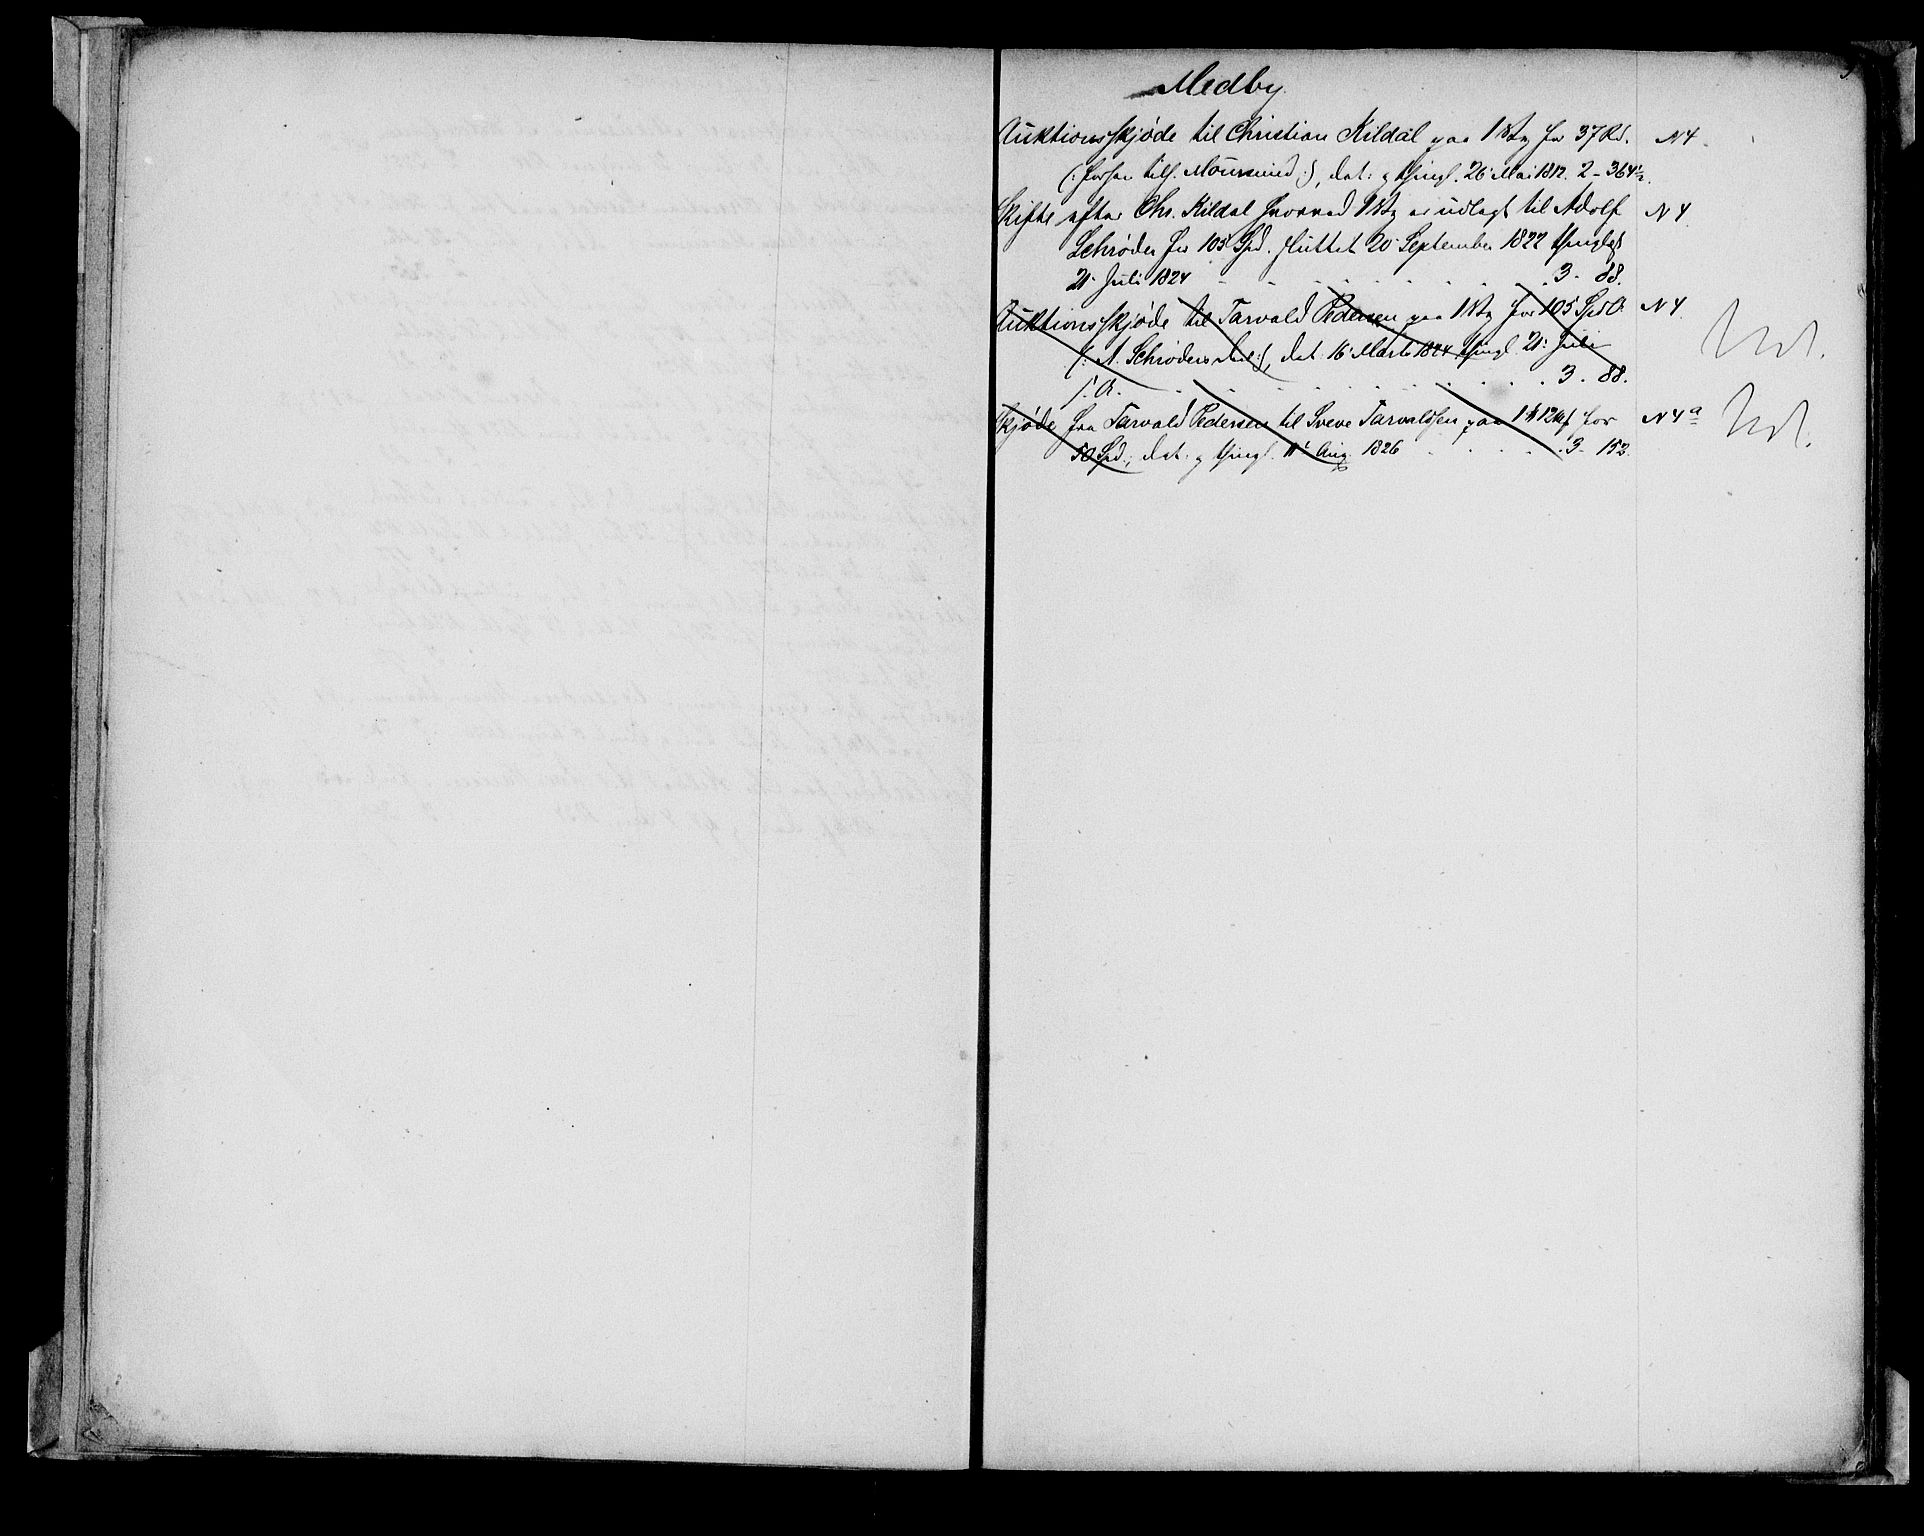 Medby.
Auktionsskjøde til Christian Kildal paa 1 Vg for 37 Rd. N 4.
(: forhen tilh. Moursund :), dat: & thingl. 26 Mai 1812. 2 - 364 ½.
Skifte efter Chr. Kildal hvorved 1 Vg er udlagt til Adolf N 4.
Schrøder for 105 Spd. sluttet 20 September 1822 thinglæst
21 Juli 1824 . . . . . . . 3 - 88.
Auktionsskjøde til Tarvald Pedersen paa 1 Vg for 105 Spd. N 4.
(: A. Schrøders :), dat: 16 Marts 1824 thingl. 21 Juli
s. A. . . . . . . . . 3 - 88. Ud.
Skjøde fra Tarvald Pedersen til Sveve Tarvaldsen paa 1 12 for N 4 a
50 Spd., dat: & thingl. 11 Aug. 1826 . . . . 3 - 152. Ud.